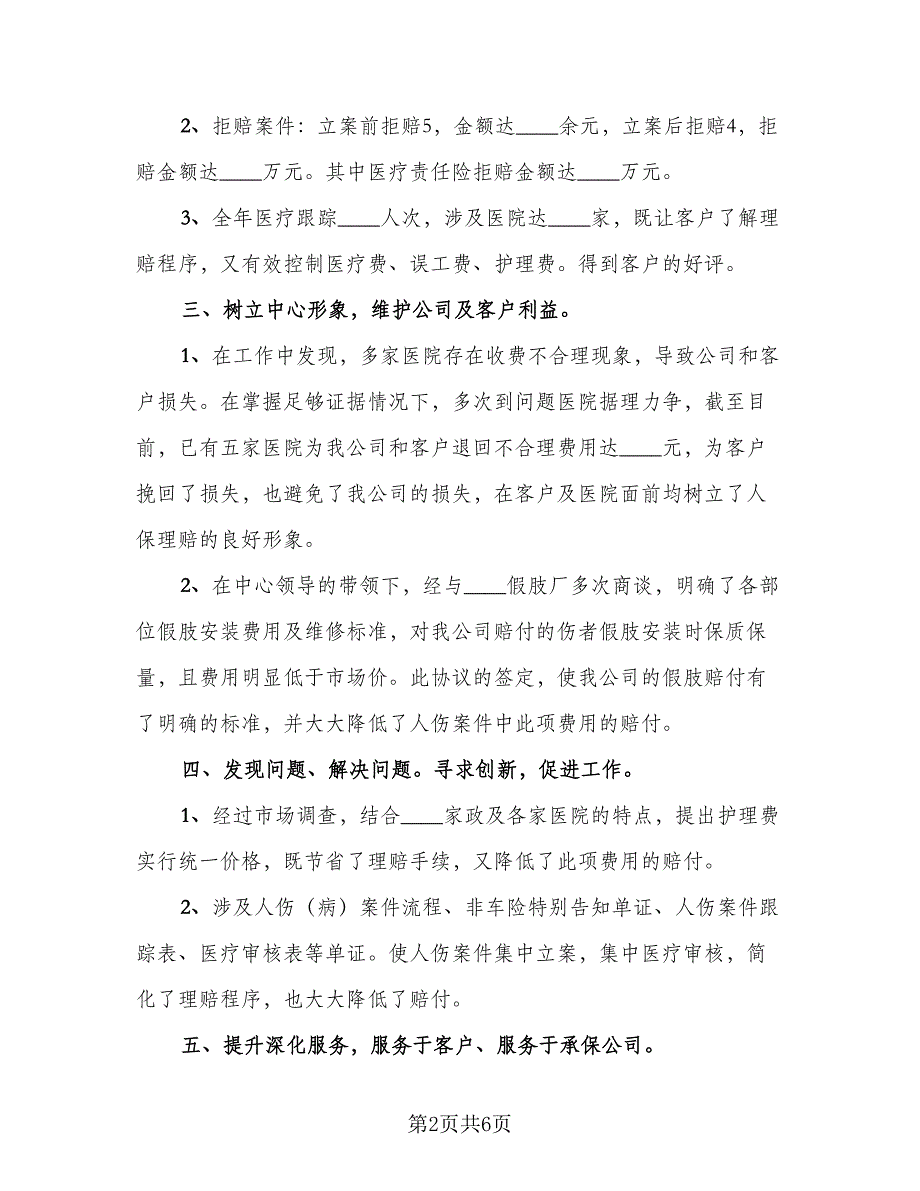 2、拒赔案件：立案前拒赔5，金额达____余元，立案后拒赔4，拒
赔金额达____万元。其中医疗责任险拒赔金额达____万元。
3、全年医疗跟踪____人次，涉及医院达____家，既让客户了解理
赔程序，又有效控制医疗费、误工费、护理费。得到客户的好评。
三、树立中心形象，维护公司及客户利益。
1、在工作中发现，多家医院存在收费不合理现象，导致公司和客
户损失。在掌握足够证据情况下，多次到问题医院据理力争，截至目
前，已有五家医院为我公司和客户退回不合理费用达____元，为客户
挽回了损失，也避免了我公司的损失，在客户及医院面前均树立了人
保理赔的良好形象。
2、在中心领导的带领下，经与____假肢厂多次商谈，明确了各部
位假肢安装费用及维修标准，对我公司赔付的伤者假肢安装时保质保
量，且费用明显低于市场价。此协议的签定，使我公司的假肢赔付有
了明确的标准，并大大降低了人伤案件中此项费用的赔付。
四、发现问题、解决问题。寻求创新，促进工作。
1、经过市场调查，结合____家政及各家医院的特点，提出护理费
实行统一价格，既节省了理赔手续，又降低了此项费用的赔付。
2、涉及人伤（病）案件流程、非车险特别告知单证、人伤案件跟
踪表、医疗审核表等单证。使人伤案件集中立案，集中医疗审核，简
化了理赔程序，也大大降低了赔付。
五、提升深化服务，服务于客户、服务于承保公司。
第2页共6页